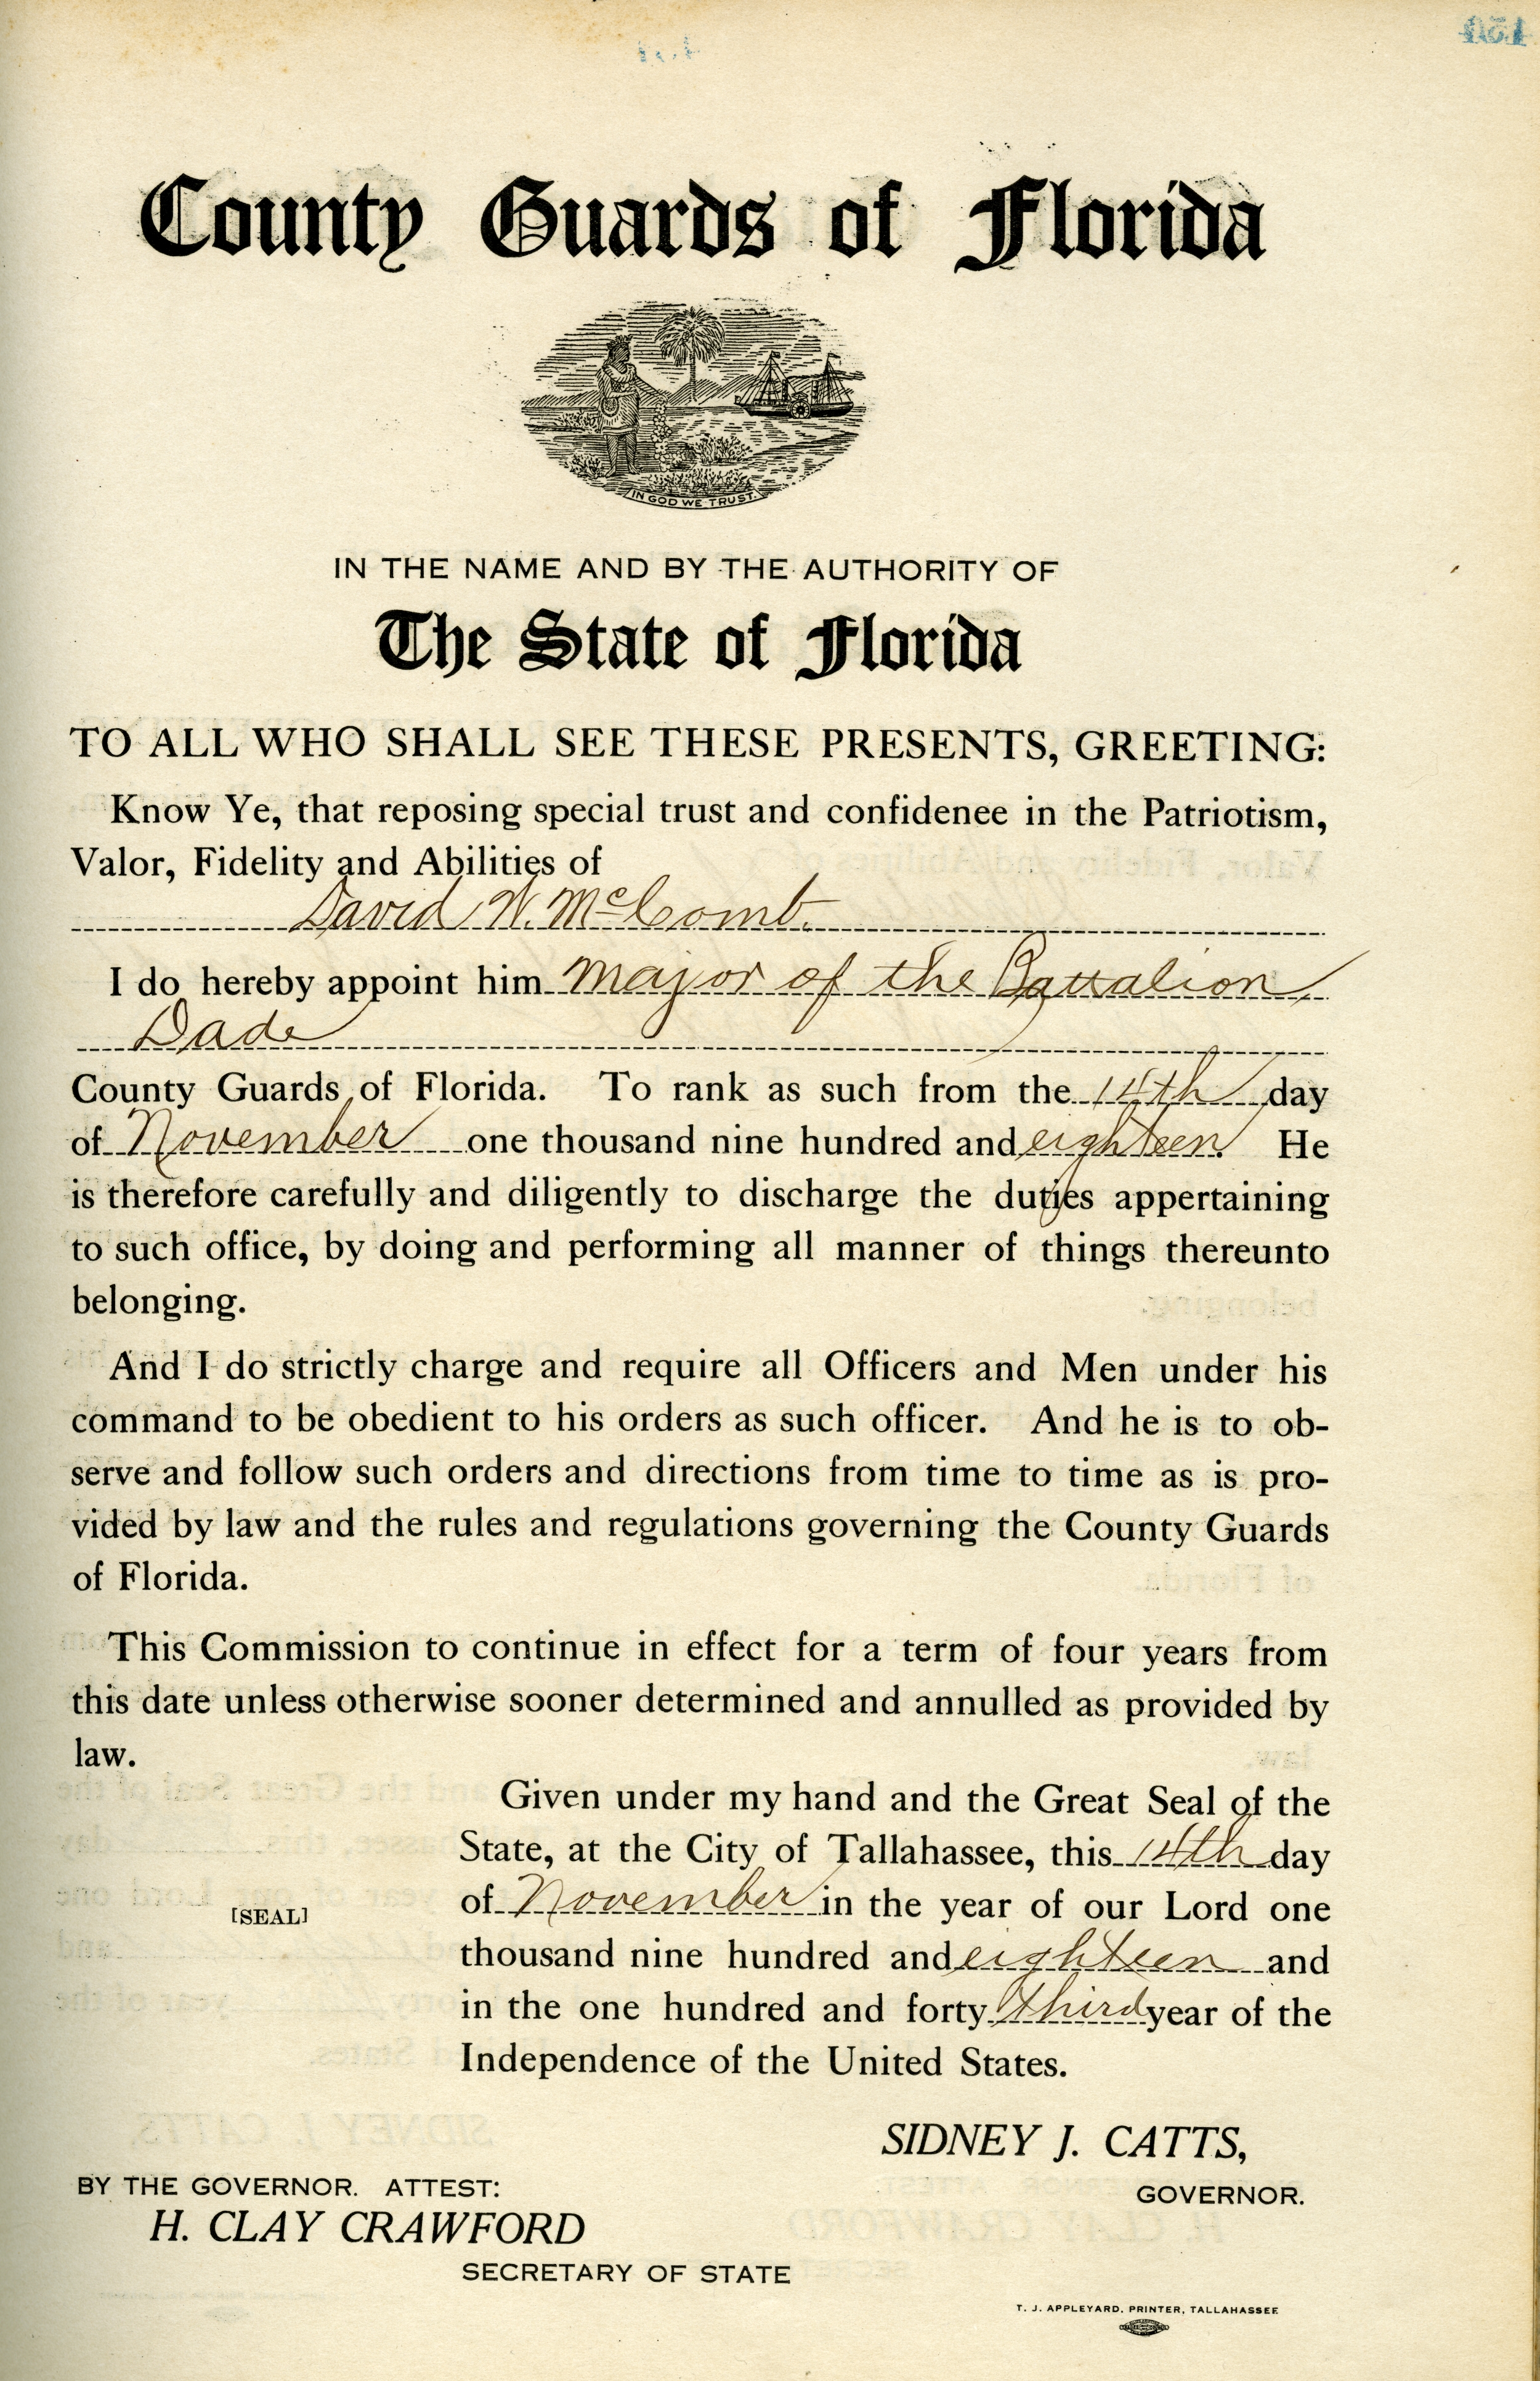 County Guards of Florida
IN GOD WE TRUST
IN THE NAME AND BY THE AUTHORITY OF
The State of Florida
TO ALL WHO SHALL SEE THESE PRESENTS, GREETING:
Know Ye, that reposing special trust and confidenee in the Patriotism,
Valor, Fidelity and Abilities of
David W. McComb.
I do hereby appoint him Major of the Battalion
Dade
County Guards of Florida. To rank as such from the 14th day
of November one thousand nine hundred and eighteen. He
is therefore carefully and diligently to discharge the duties appertaining
to such office, by doing and performing all manner of things thereunto
belonging.
And I do strictly charge and require all Officers and Men under his
command to be obedient to his orders as such officer. And he is to ob-
serve and follow such orders and directions from time to time as is pro-
vided by law and the rules and regulations governing the County Guards
of Florida.
This Commission to continue in effect for a term of four years from
this date unless otherwise sooner determined and annulled as provided by
law.
Given under my hand and the Great Seal of the
State, at the City of Tallahassee, this 14th day
of November in the year of our Lord one
[SEAL]
thousand nine hundred and eighteen and
in the one hundred and forty third year of the
Independence of the United States.
SIDNEY J. CATTS,
GOVERNOR.
BY THE GOVERNOR. ATTEST:
H. CLAY CRAWFORD
SECRETARY OF STATE
T. J. APPLEYARD, PRINTER, TALLAHASSEE